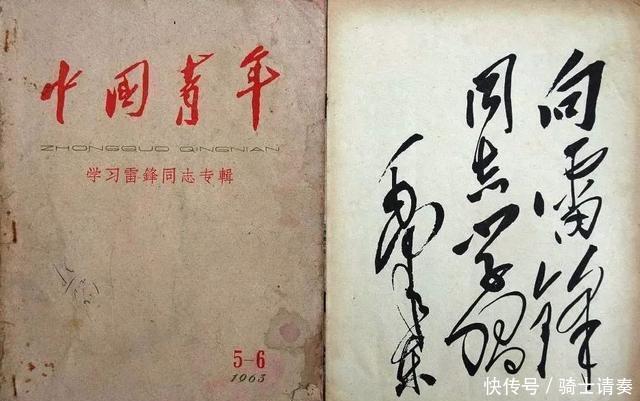 中国青年
ZHONGGUO QINGNIAN
学习雷鋒同志专輯
5-6
1963
向雷锋
同志学习
毛泽东
快传号/骑士请奏